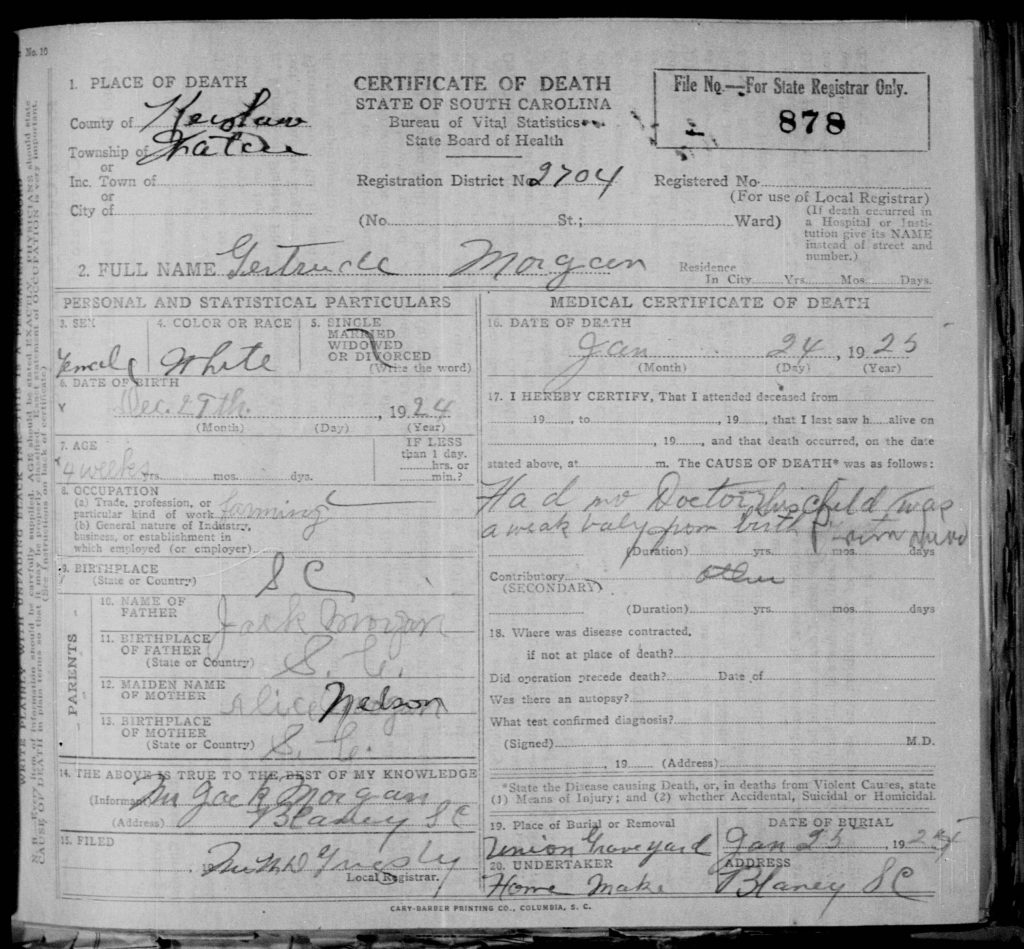 No. 10
1. PLACE OF DEATH
County of Kershaw
Township of Wateree
or
Inc. Town of
or
City of
CERTIFICATE OF DEATH
STATE OF SOUTH CAROLINA
Bureau of Vital Statistics
State Board of Health
File No.—For State Registrar Only.
878
Registration District No 2704
Registered No
(For use of Local Registrar)
(No. St.; Ward)
(If death occurred in
a Hospital or Insti-
tution give its NAME
instead of street and
number.)
2. FULL NAME Gertrude Morgan
Residence
In City Yrs. Mos. Days.
PERSONAL AND STATISTICAL PARTICULARS
3. SEX
Female
4. COLOR OR RACE
White
5. SINGLE
MARRIED
WIDOWED
OR DIVORCED
(Write the word)
6. DATE OF BIRTH
Dec. 29th. , 1924
(Month) (Day) (Year)
7. AGE
4 weeks yrs. mos. dys.
IF LESS
than 1 day.
hrs. or
min.?
8. OCCUPATION
(a) Trade, profession, or
particular kind of work farming
(b) General nature of Industry,
business, or establishment in
which employed (or employer)
9. BIRTHPLACE
(State or Country) S C
PARENTS
10. NAME OF
FATHER Jack Morgan
11. BIRTHPLACE
OF FATHER
(State or Country) S. C.
12. MAIDEN NAME
OF MOTHER Alice Nelson
13. BIRTHPLACE
OF MOTHER
(State or Country) S. C.
14. THE ABOVE IS TRUE TO THE BEST OF MY KNOWLEDGE
(Informant) Jack Morgan
(Address) Blaney S C
15. FILED
19
Local Registrar.
MEDICAL CERTIFICATE OF DEATH
16. DATE OF DEATH
Jan 24 , 1925
(Month) (Day) (Year)
17. I HEREBY CERTIFY, That I attended deceased from
19 , to , 19 , that I last saw h alive on
, 19 , and that death occurred, on the date
stated above, at m. The CAUSE OF DEATH* was as follows:
Had no Doctor this child was
a weak baby from birth
(Duration) yrs. mos. days
Contributory other
(SECONDARY)
(Duration) yrs. mos. days
18. Where was disease contracted,
if not at place of death?
Did operation precede death? Date of
Was there an autopsy?
What test confirmed diagnosis?
(Signed) M.D.
, 19 (Address)
*State the Disease causing Death, or, in deaths from Violent Causes, state
(1) Means of Injury; and (2) whether Accidental, Suicidal or Homicidal.
19. Place of Burial or Removal
Union Graveyard
DATE OF BURIAL
Jan 25 , 1925
20. UNDERTAKER
Home Make
ADDRESS
Blaney S C
CARY-BARBER PRINTING CO., COLUMBIA, S. C.